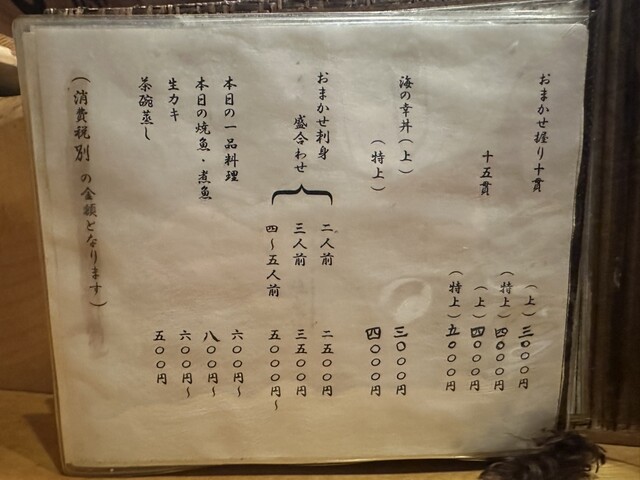 おまかせ握り十貫 (上) 三〇〇〇円
(特上) 四〇〇〇円
十五貫 (上) 四〇〇〇円
(特上) 五〇〇〇円
海の幸丼 (上) 三〇〇〇円
(特上) 四〇〇〇円
おまかせ刺身
盛合わせ
二人前 二五〇〇円
三人前 三五〇〇円
四〜五人前 五〇〇〇円〜
本日の一品料理 六〇〇円〜
本日の焼魚・煮魚 八〇〇円〜
生カキ 六〇〇円〜
茶碗蒸し 五〇〇円
(消費税別の金額となります)